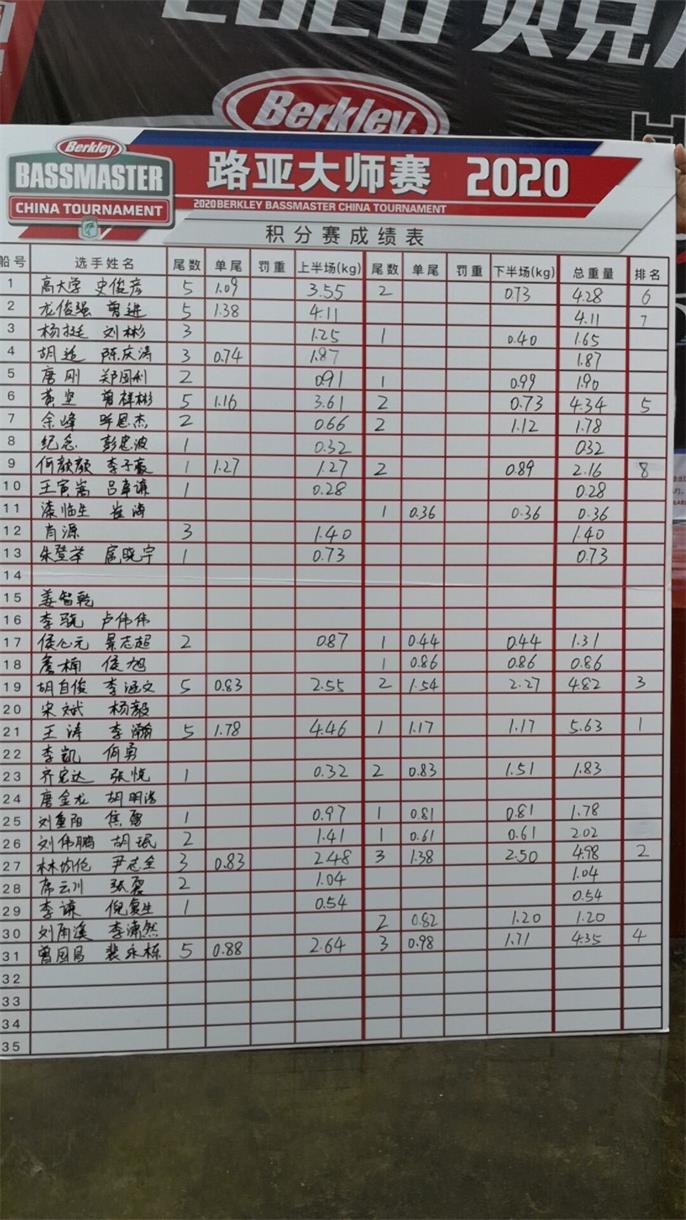 2020 贝克
Berkley
Berkley
BASSMASTER
CHINA TOURNAMENT
路亚大师赛 2020
2020 BERKLEY BASSMASTER CHINA TOURNAMENT
积分赛成绩表
船号 选手姓名 尾数 单尾 罚重 上半场(kg) 尾数 单尾 罚重 下半场(kg) 总重量 排名
1 高大学 史俊彦 5 1.09 3.55 2 0.73 4.28 6
2 龙俊强 曾进 5 1.38 4.11 4.11 7
3 杨挺 刘彬 3 1.25 1 0.40 1.65
4 胡 陈庆涛 3 0.74 1.87 1.87
5 唐刚 郑国利 2 0.91 1 0.99 1.90
6 黄坚 曾祥彬 5 1.16 3.61 2 0.73 4.34 5
7 余峰 思杰 2 0.66 2 1.12 1.78
8 纪念 彭忠波 1 0.32 0.32
9 何颜颜 李子豪 1 1.27 1.27 2 0.89 2.16 8
10 王寅嵩 吕 谦 1 0.28 0.28
11 漆临生 崔海 1 0.36 0.36 0.36
12 肖源 3 1.40 1.40
13 朱登举 晓宇 1 0.73 0.73
14
15 姜智乾
16 李骁 卢伟伟
17 侯 元 景志超 2 0.87 1 0.44 0.44 1.31
18 詹楠 侯旭 1 0.86 0.86 0.86
19 胡自俊 李涵文 5 0.83 2.55 2 1.54 2.27 4.82 3
20 宋斌 杨毅
21 王涛 李瀚 5 1.78 4.46 1 1.17 1.17 5.63 1
22 李凯 何勇
23 齐宏达 张悦 1 0.32 2 0.83 1.51 1.83
24 唐金龙 胡明浩
25 刘重阳 焦磊 1 0.97 1 0.81 0.81 1.78
26 刘伟鹏 胡珉 2 1.41 1 0.61 0.61 2.02
27 林均伦 尹志全 3 0.83 2.48 3 1.38 2.50 4.98 2
28 席云川 张磊 2 1.04 1.04
29 李谦 倪复生 1 0.54 0.54
30 刘雨溪 李潇然 2 0.82 1.20 1.20
31 曾国昌 裴永栋 5 0.88 2.64 3 0.98 1.71 4.35 4
32
33
34
35